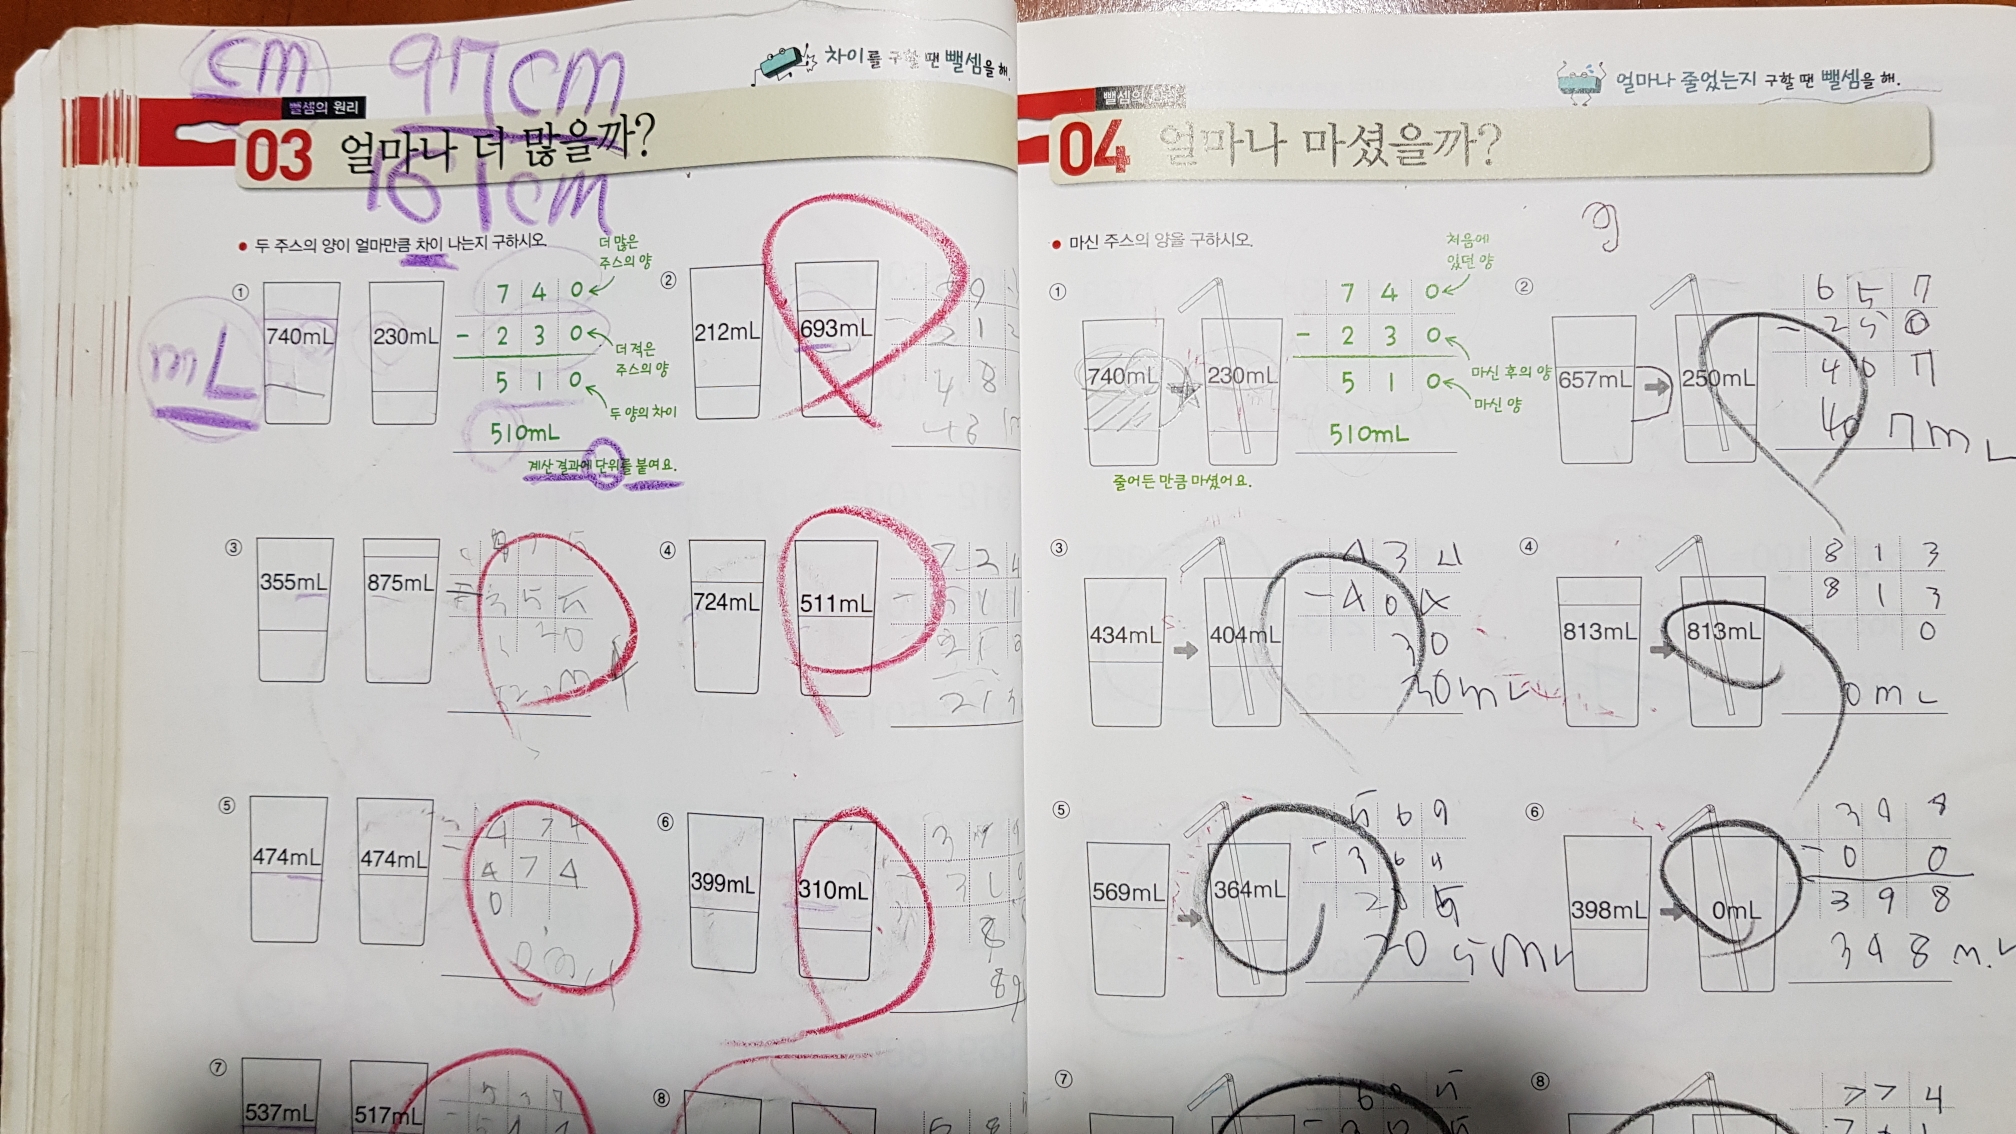 cm 97cm
161cm
차이를 구할 땐 뺄셈을 해.
뺄셈의 원리
03 얼마나 더 많을까?
• 두 주스의 양이 얼마만큼 차이 나는지 구하시오.
mL
① 740mL 230mL
7 4 0 더 많은 주스의 양
- 2 3 0 더 적은 주스의 양
5 1 0 두 양의 차이
510mL
계산 결과에 단위를 붙여요.
② 212mL 693mL
③ 355mL 875mL
④ 724mL 511mL
7 2
- 5 1 1
2 1
213
⑤ 474mL 474mL
4 7 4
4 7 4
0
⑥ 399mL 310mL
89
⑦ 537mL 517mL
⑧
얼마나 줄었는지 구할 땐 뺄셈을 해.
뺄셈의
04 얼마나 마셨을까?
• 마신 주스의 양을 구하시오.
① 740mL 230mL
7 4 0 처음에 있던 양
- 2 3 0 마신 후의 양
5 1 0 마신 양
510mL
줄어든 만큼 마셨어요.
② 657mL 250mL
6 5 7
- 2 5 0
4 0 7
407mL
③ 434mL 404mL
4 3 4
- 4 0 4
3 0
30mL
④ 813mL 813mL
8 1 3
8 1 3
0
0mL
⑤ 569mL 364mL
5 6 9
- 3 6 4
2 0 5
205mL
⑥ 398mL 0mL
3 9 8
- 0 0
3 9 8
398mL
⑦
⑧
7 7 4